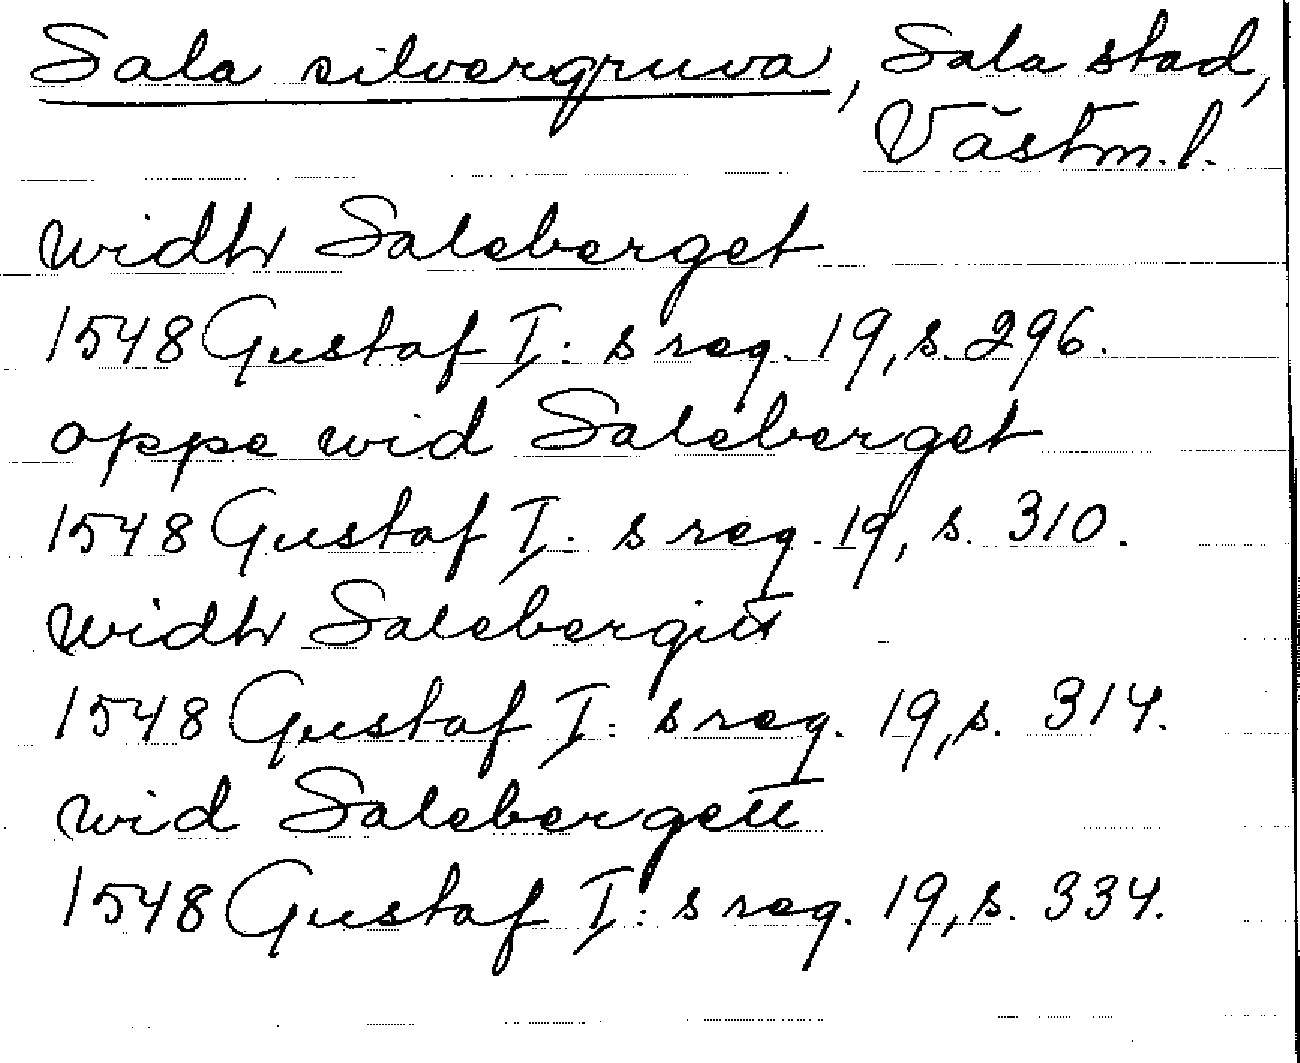 Sala silvergruva, Sala stad,
Västm. l.
widh Saleberget
1548 Gustaf I:s reg. 19, s. 296.
oppe wid Saleberget
1548 Gustaf I:s reg. 19, s. 310.
widh Salebergitt
1548 Gustaf I:s reg. 19, s. 314.
wid Salebergett
1548 Gustaf I:s reg. 19, s. 334.